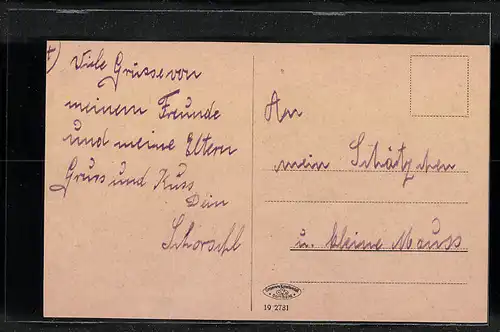 Viele Grüsse von
meinem Freunde
und meine Eltern
Gruss und Kuss
Dein
Schorschl
An
mein Schätzchen
u. kleine Mauss
19 2781